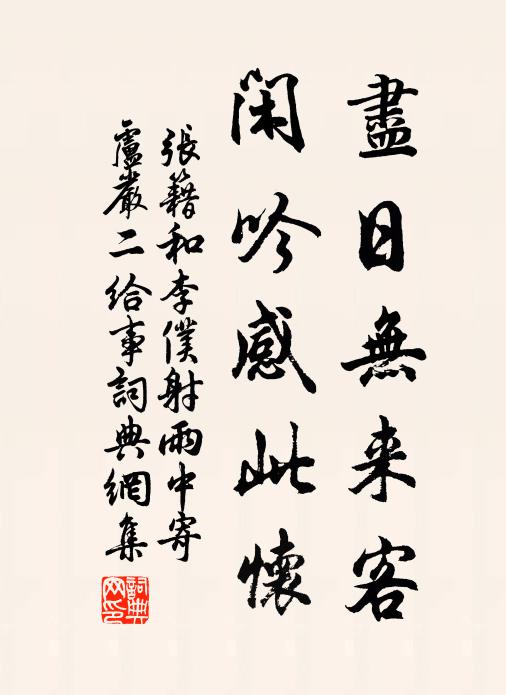 盡日無来客
閑吟感此懷
張籍和李僕射雨中寄
盧嚴二給事詞典網集